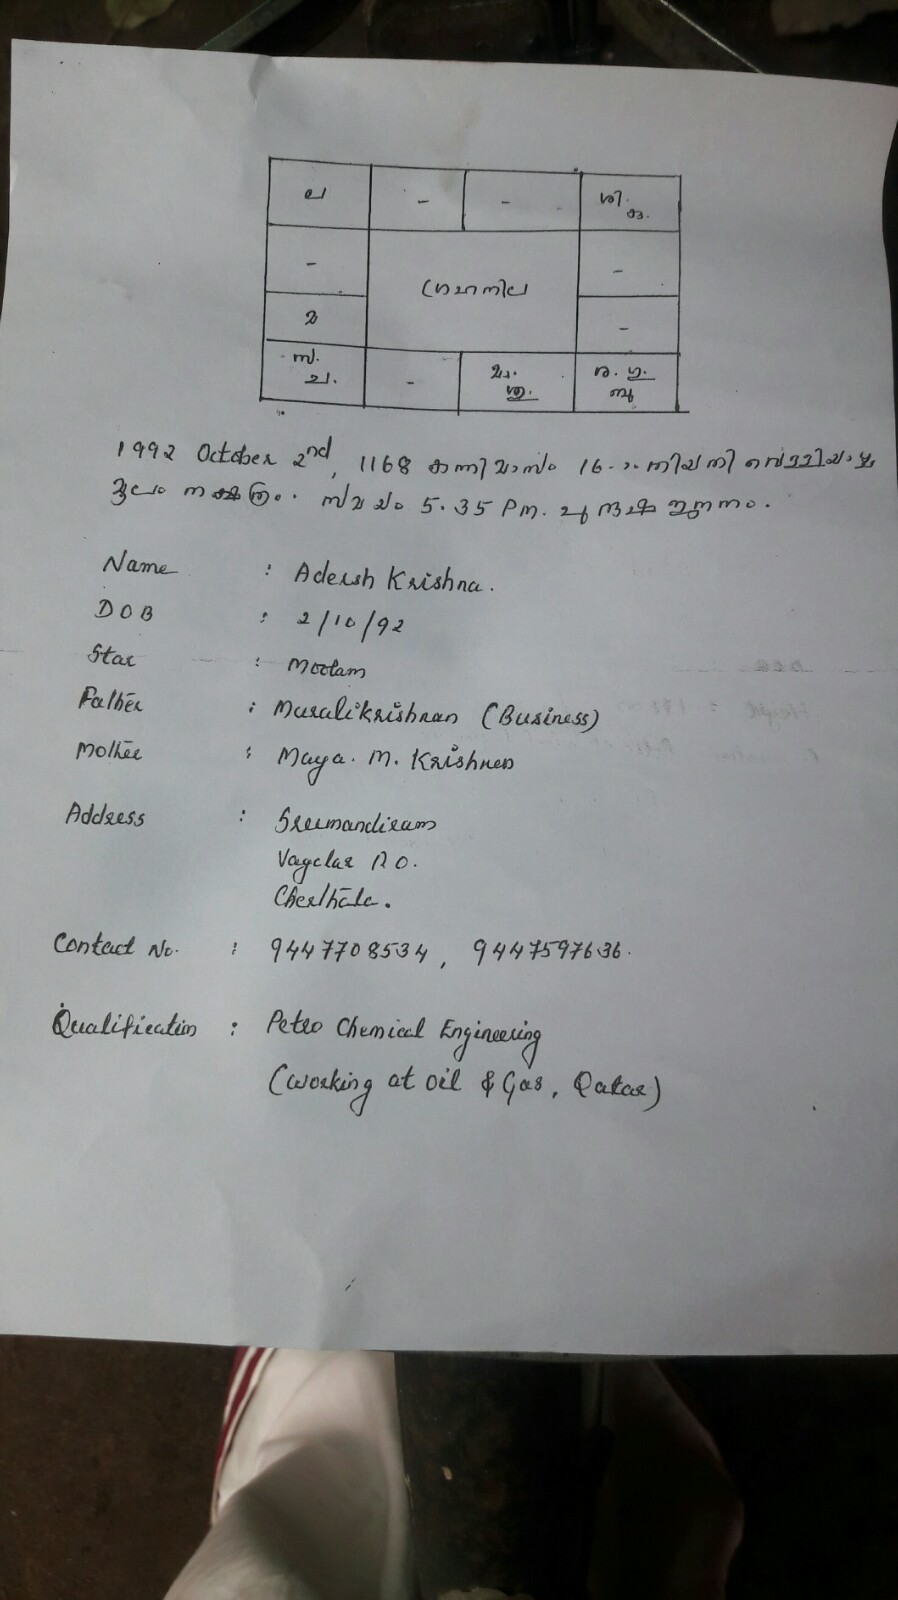 ല - - ശി. കു.
- ഗ്രഹനില -
മ -
സ. ച. - മാ. ശു. ര. ഗു. ബു
1992 October 2nd, 1168 കന്നിമാസം 16-ാം തിയതി വെള്ളിയാഴ്ച
മൂലം നക്ഷത്രം. സമയം 5.35 PM. ജനനം.
Name : Adersh Krishna.
DOB : 2/10/92
Star : Moolam
Father : Muralikrishnan (Business)
Mother : Maya. M. Krishnan
Address : Sreemandiram
P.O.
Cherthala.
Contact No. : 9447708534, 9447597636.
Qualification : Petro Chemical Engineering
(working at oil & Gas, Qatar)